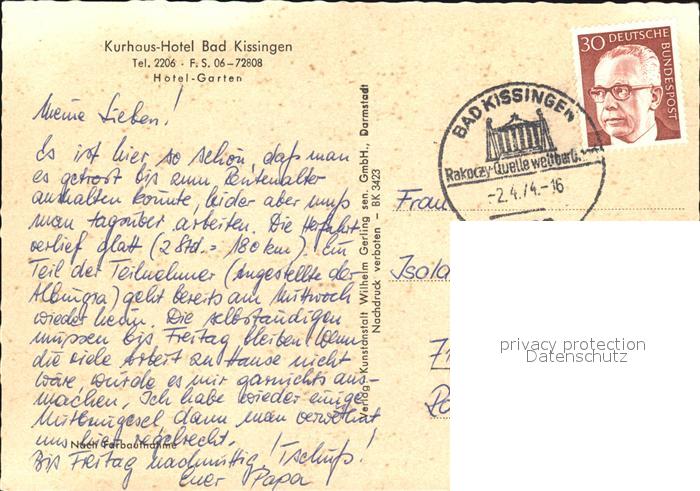 Kurhaus-Hotel Bad Kissingen
Tel. 2206 · F. S. 06–72808
Hotel-Garten
Meine Lieben!
Es ist hier so schön, daß man
es getrost bis zum Rentenalter
aushalten könnte, leider aber muß
man tagsüber arbeiten. Die Herfahrt
verlief glatt (2 Std. = 180 km). Ein
Teil der Teilnehmer (Angestellte der
) geht bereits am Mittwoch
wieder heim. Die selbständigen
müssen bis Freitag bleiben. Wenn
die viele Arbeit zu Hause nicht
wäre, würde es mir garnichts aus-
machen. Ich habe wieder einige
dann man verwöhnt
uns hier regelrecht.
Bis Freitag nachmittag! Tschüß!
Euer Papa
Nach Farbaufnahme
Verlag · Kunstanstalt Wilhelm Gerling sen. GmbH., Darmstadt
Nachdruck verboten – BK 3423
BAD KISSINGEN
Rakoczy-Quelle weltber
-2.4.74.-16
30 DEUTSCHE
BUNDESPOST
Frau
privacy protection
Datenschutz